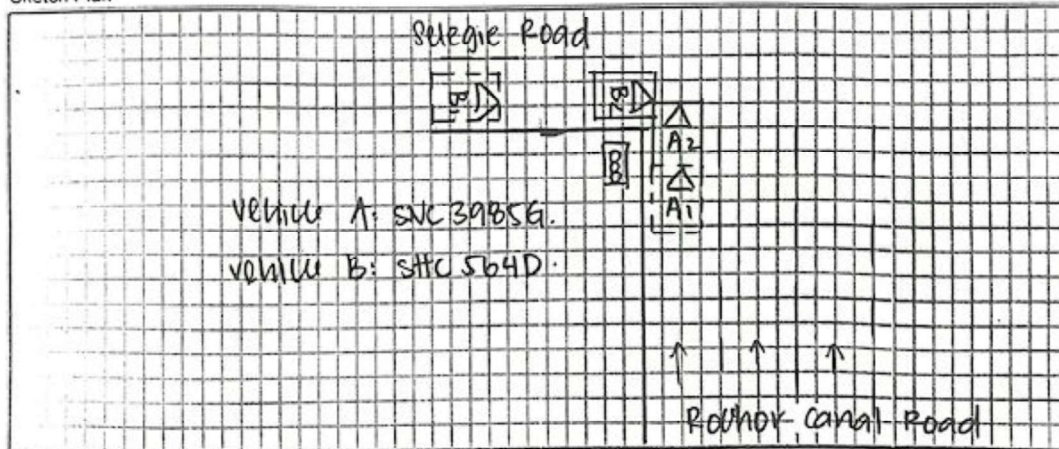 Selegie Road
B1
B2
A2
A1
vehicle A: SNC3985G.
vehicle B: SHC 564D.
Rochor Canal Road